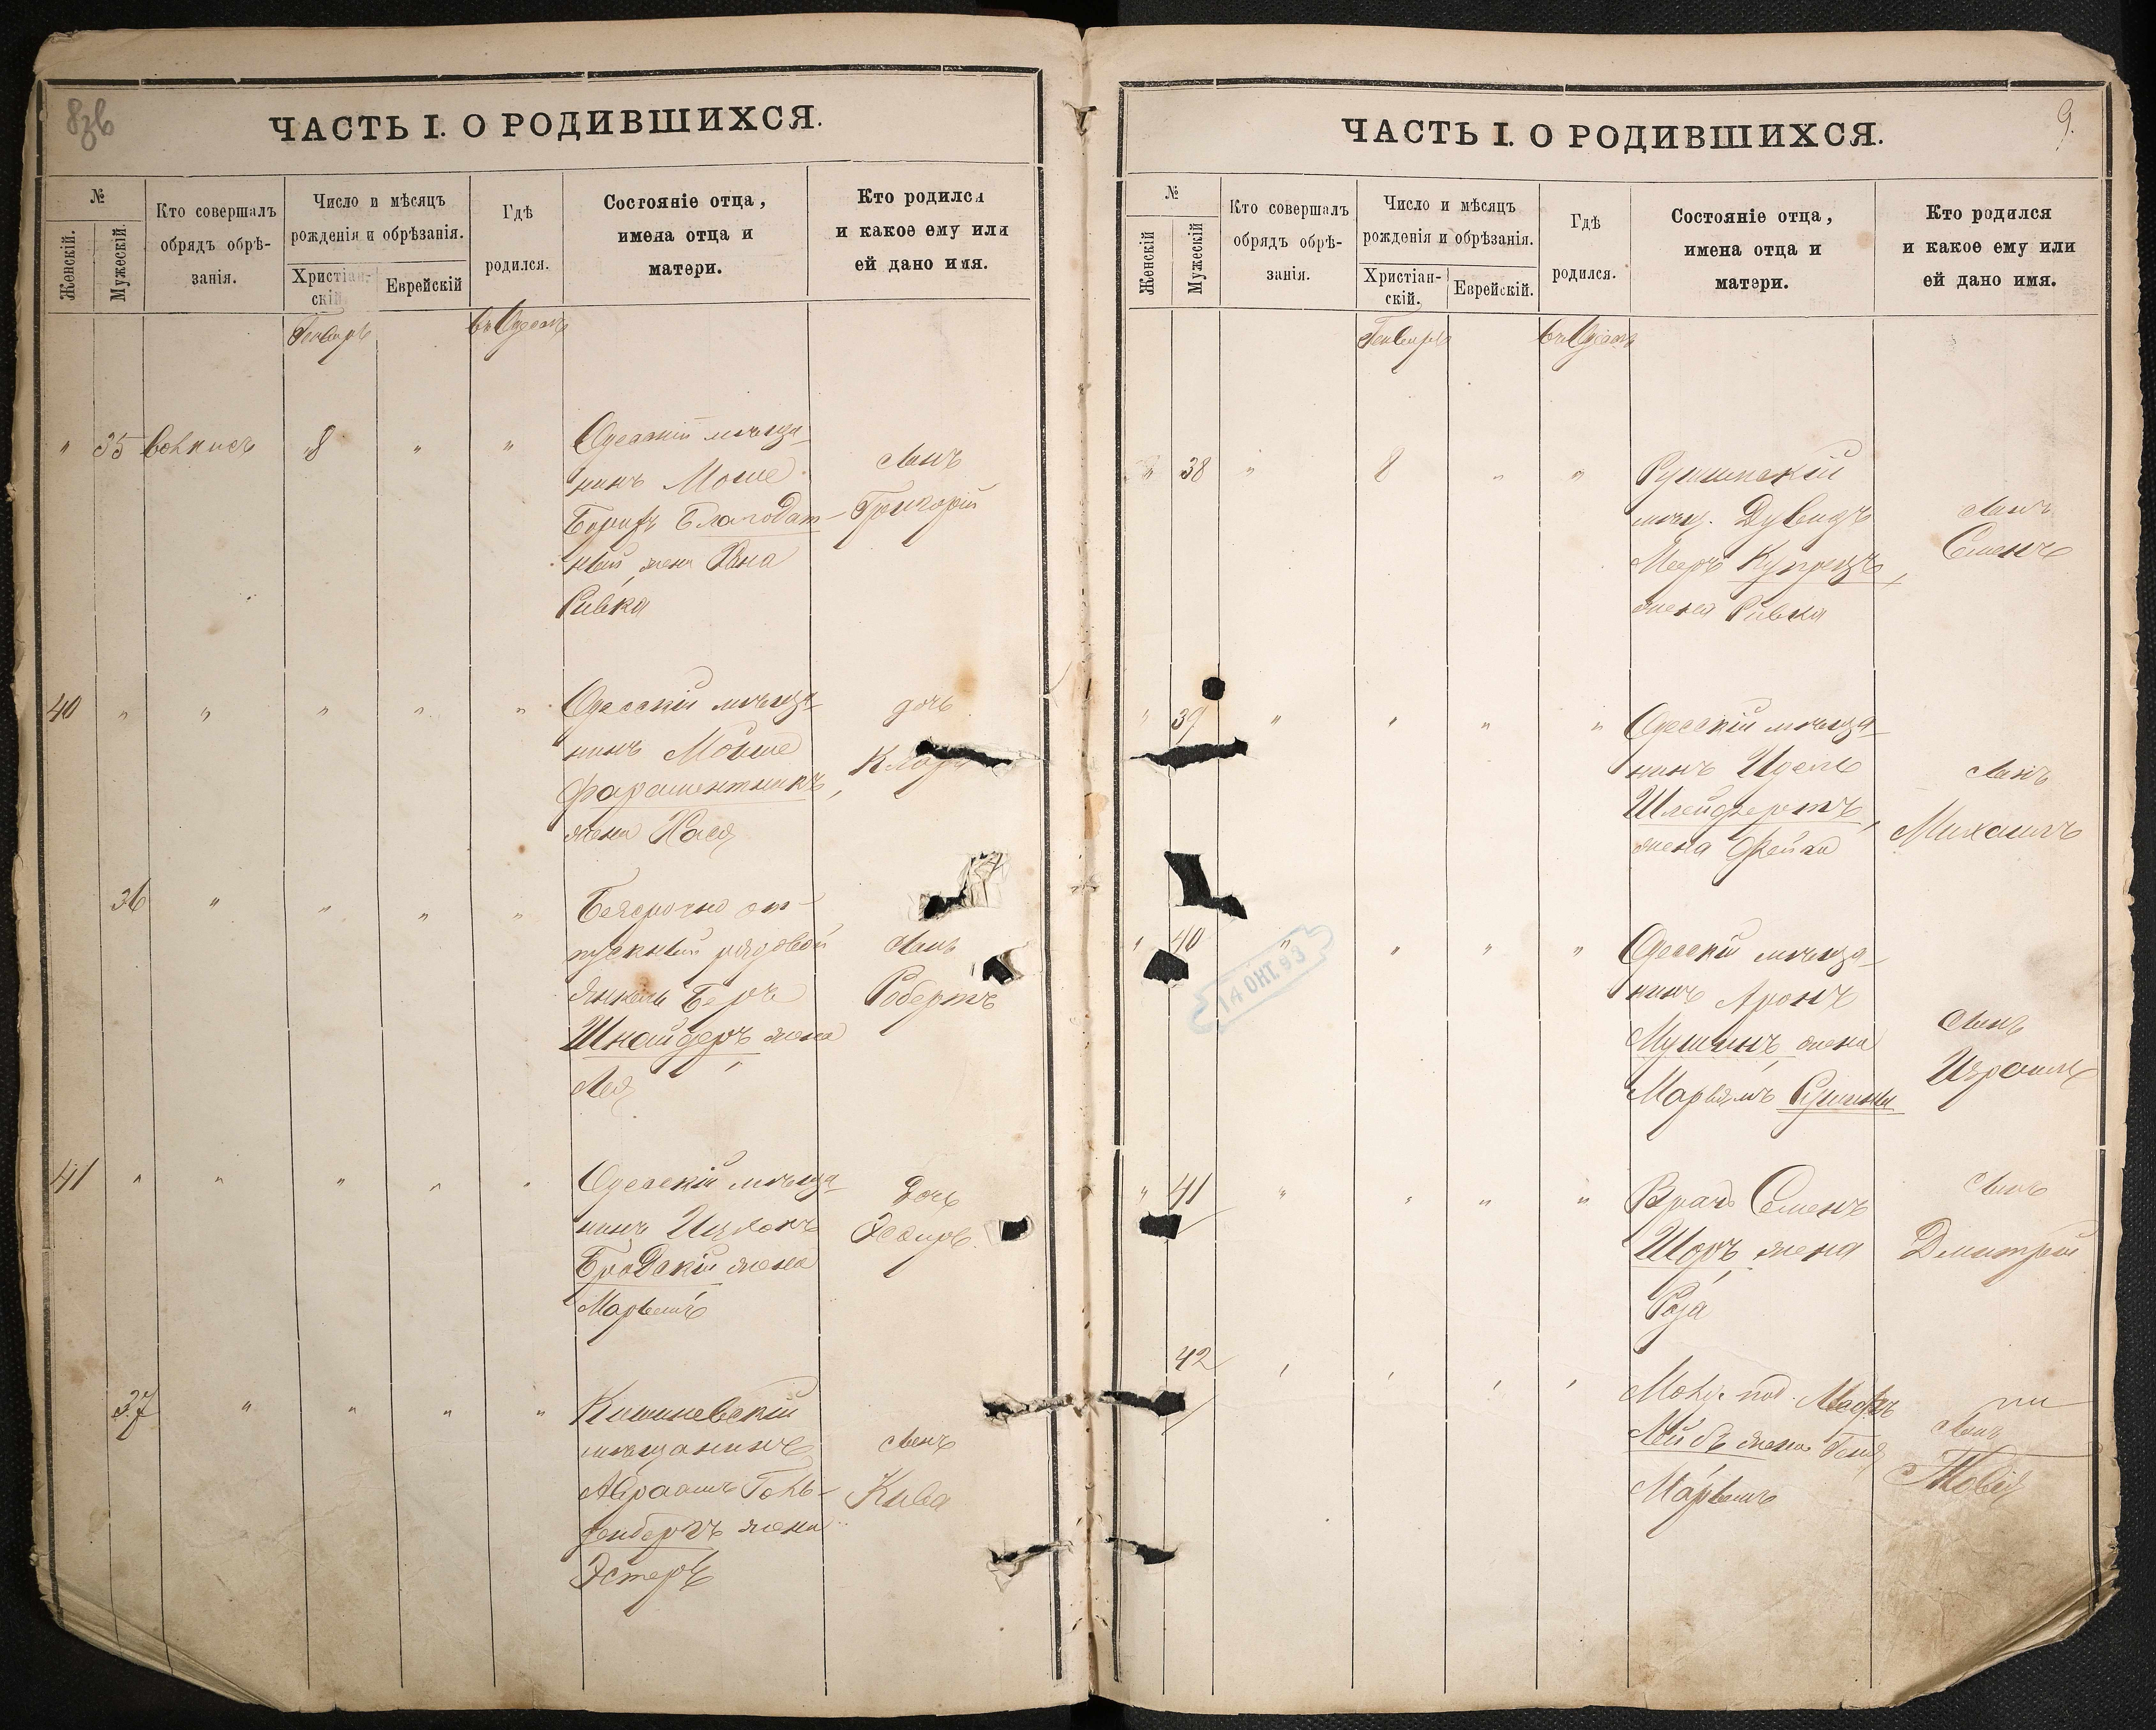 8зв
ЧАСТЬ I. О РОДИВШИХСЯ.
№
Женскій.
Мужескій.
Кто совершалъ
обрядъ обрѣ-
занія.
Число и мѣсяцъ
рожденія и обрѣзанія.
Христіан-
скій
Еврейскій
Гдѣ
родился.
Состояніе отца,
имена отца и
матери.
Кто родился
и какое ему или
ей дано имя.
Генварь
въ Одессѣ
" 35
8 " "
Одесскій мѣща-
нинъ Моше
Борухъ Благодат-
ный, жена Хана
Ривка
сынъ
Григорій
40 " " " " "
Одесскій мѣща-
нинъ Мойше
Фараментникъ,
жена Хася
дочь
Клара
36 " " " "
Безсрочно от-
пускный рядовой
Янкель Беръ
Шнайдеръ, жена
Лея
сынъ
Робертъ
41 " " " " "
Одесскій мѣща-
нинъ Ицхокъ
Бродскій, жена
Марьемъ
дочь
Эсѳирь
37 " " " "
Кишиневскій
мѣщанинъ
АбраамъГоль-
денбергъ жена
Эстеръ
сынъ
Кива
9.
ЧАСТЬ I. О РОДИВШИХСЯ.
№
Женскій
Мужескій
Кто совершалъ
обрядъ обрѣ-
занія.
Число и мѣсяцъ
рожденія и обрѣзанія.
Христіан-
скій.
Еврейскій.
Гдѣ
родился.
Состояніе отца,
имена отца и
матери.
Кто родился
и какое ему или
ей дано имя.
Генварь
въ Одессѣ
" 38 " 8 " "
мѣщ. Дувидъ
Мееръ Купрецъ,
жена Ривка
сынъ
Семенъ
" 39 " " " "
Одесскій мѣща-
нинъ Идель
жена Фейга
сынъ
Михаилъ
" 40 " " " "
Одесскій мѣща-
нинъ Аронъ
Мушинъ, жена
Марьямъ
сынъ
Израиль
14 ОКТ. 93
" 41 " " " "
Врачъ Семенъ
Шоръ, жена
Роза
сынъ
Дмитрій
42
Марьемъ
сынъ
Товія